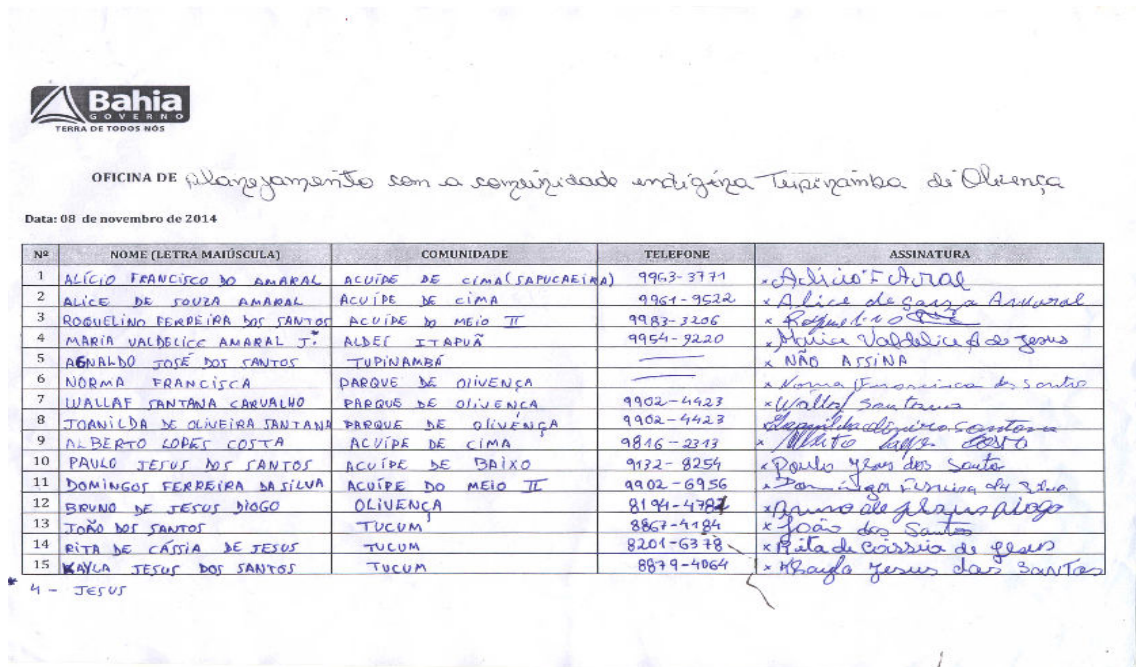 Bahia
GOVERNO
TERRA DE TODOS NÓS
OFICINA DE planejamento com a comunidade indígena Tupinamba de Olivença
Data: 08 de novembro de 2014
Nº NOME (LETRA MAIÚSCULA) COMUNIDADE TELEFONE ASSINATURA
1 ALÍCIO FRANCISCO DO AMARAL ACUÍPE DE CIMA (SAPUCAEIRA) 9963-3771 x
2 ALICE DE SOUZA AMARAL ACUÍPE DE CIMA 9961-9522 x Alice de Souza Amaral
3 ROQUELINO FERREIRA DOS SANTOS ACUÍPE DO MEIO II 9983-3206 x Roquelino
4 MARIA VALDELICE AMARAL J. * ALDEI ITAPUÃ 9954-9220 x Maria Valdelice A de Jesus
5 AGNALDO JOSÉ DOS SANTOS TUPINAMBÁ x NÃO ASSINA
6 NORMA FRANCISCA PARQUE DE OLIVENÇA x Norma Francisca dos Santos
7 WALLAF SANTANA CARVALHO PARQUE DE OLIVENÇA 9902-4423 x Wallaf Santana
8 JOANILDA DE OLIVEIRA SANTANA PARQUE DE OLIVENÇA 9902-4423 Joanilda Oliveira Santana
9 ALBERTO LOPES COSTA ACUÍPE DE CIMA 9816-2313 x Alberto Lopes Costa
10 PAULO JESUS DOS SANTOS ACUÍPE DE BAIXO 9132-8254 x Paulo Jesus dos Santos
11 DOMINGOS FERREIRA DA SILVA ACUÍPE DO MEIO II 9902-6956 x Domingos Ferreira da Silva
12 BRUNO DE JESUS DIOGO OLIVENÇA 8194-478 x Bruno de Jesus Diogo
13 JOÃO DOS SANTOS TUCUM 8867-4184 x João dos Santos
14 RITA DE CÁSSIA DE JESUS TUCUM 8201-6378 x Rita de Cássia de Jesus
15 KAYLA JESUS DOS SANTOS TUCUM 8879-4064 x Jesus dos Santos
* 4 - JESUS